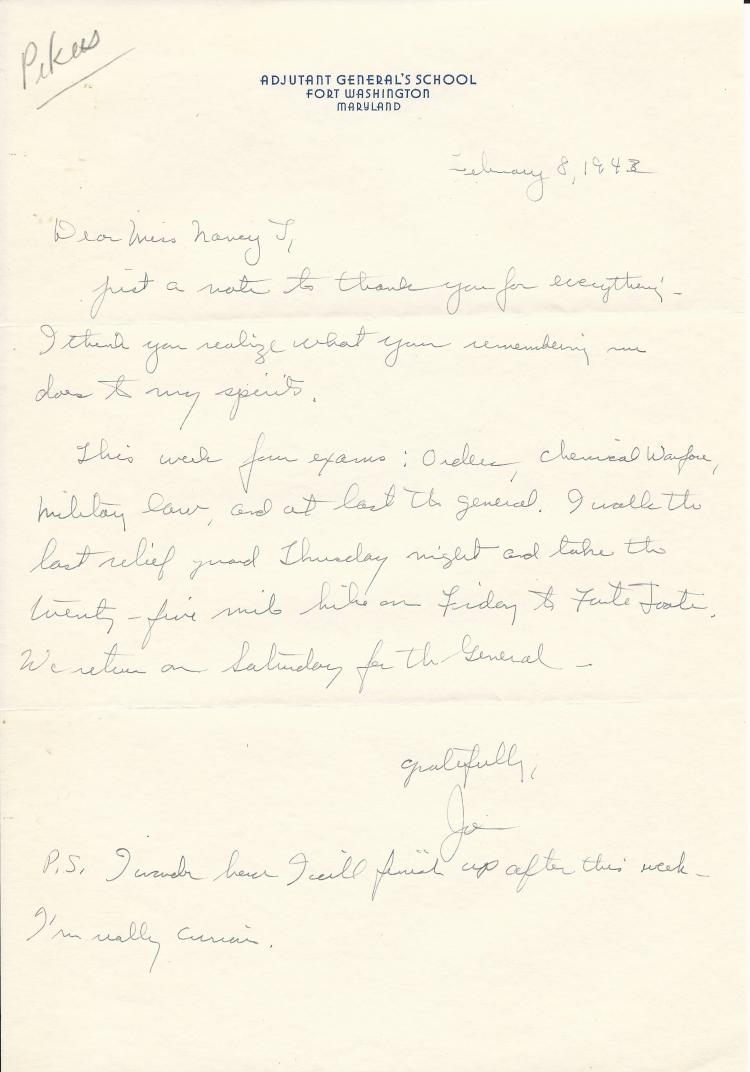 Pikus
ADJUTANT GENERAL'S SCHOOL
FORT WASHINGTON
MARYLAND
February 8, 1943
Dear Miss Nancy T,
just a note to thank you for everything -
I think you realize what your remembering me
does to my spirits.
This week four exams : Orders, Chemical Warfare,
Military law, and at last the general. I walk the
last relief guard Thursday night and take the
twenty-five mile hike on Friday to Foote.
We return on Saturday for the General -
gratefully,
Joe
P.S. I wonder how I will finish up after this week -
I'm really curious.